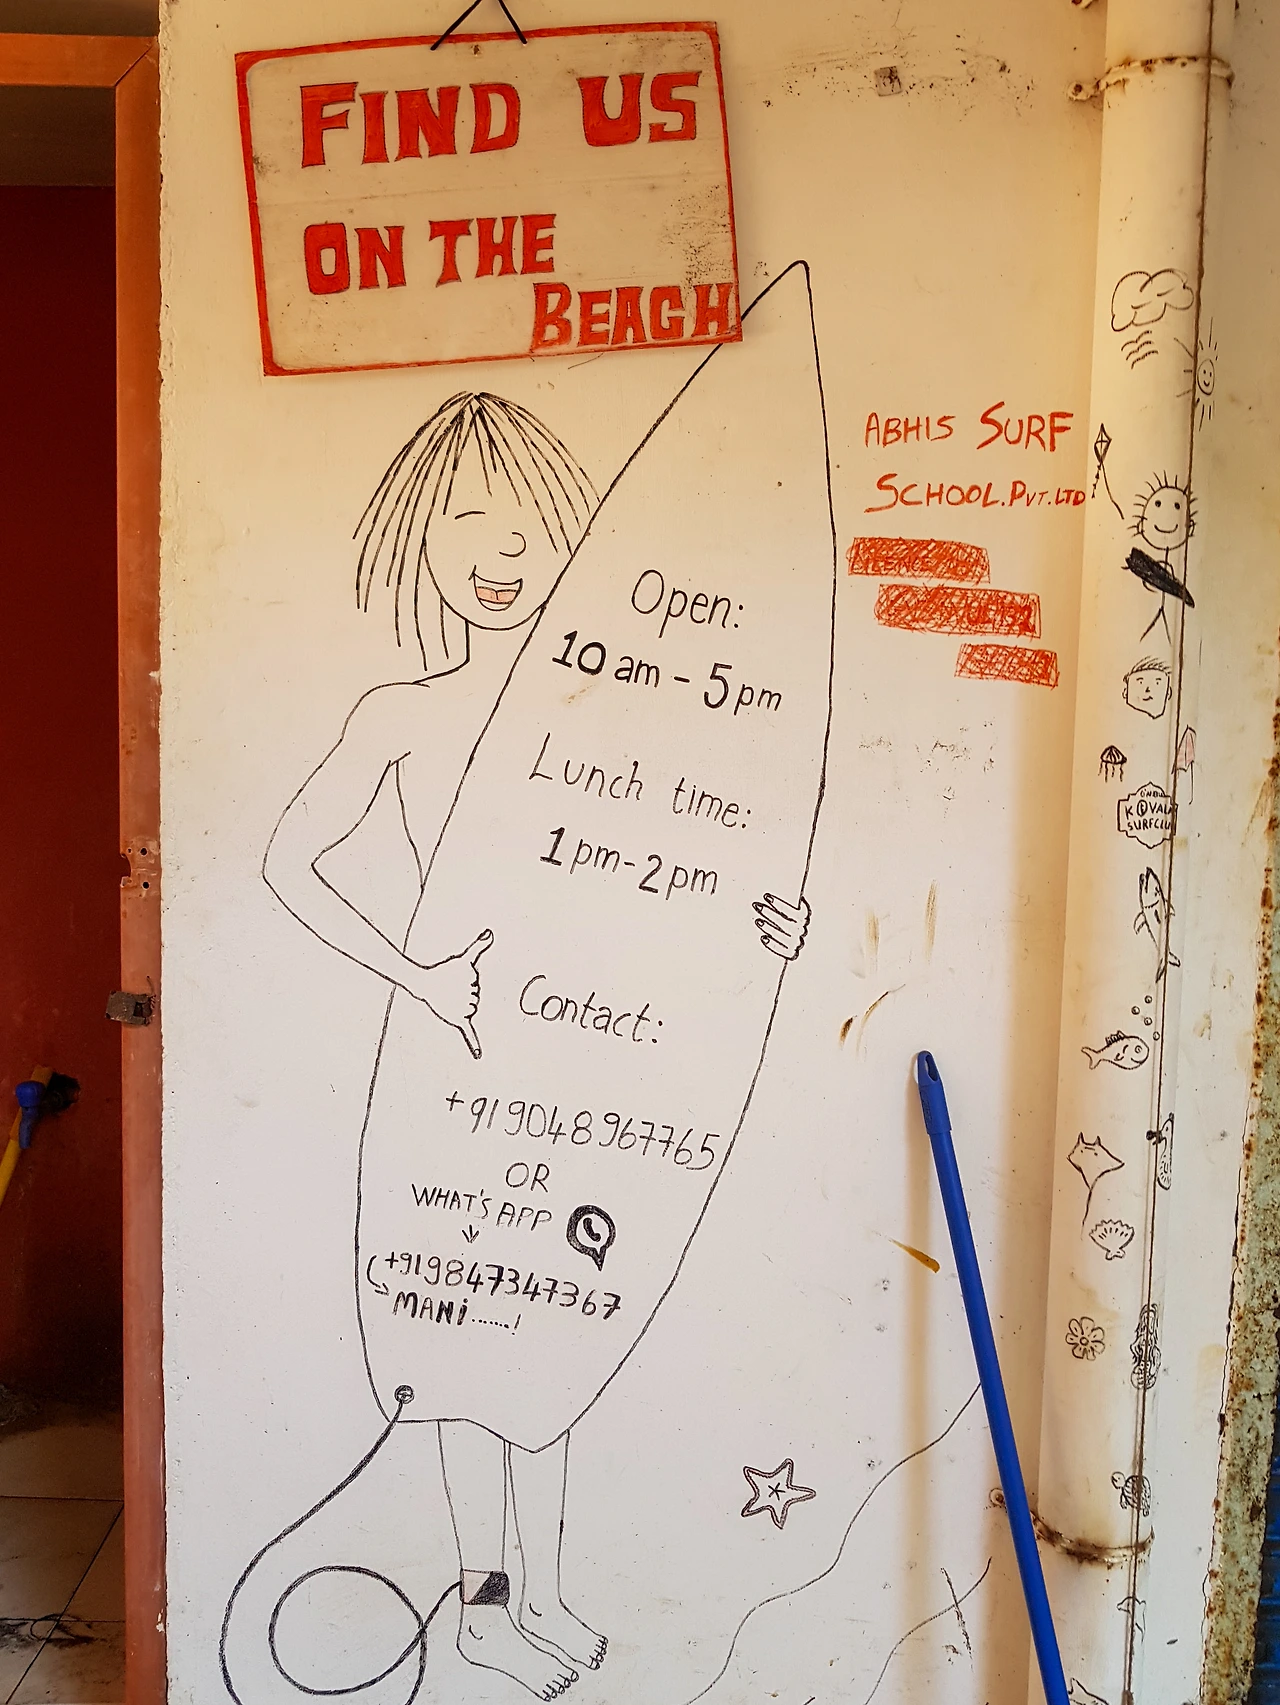 FIND US
ON THE
BEACH
ABHIS SURF
SCHOOL.PVT.LTD
Open:
10 am - 5 pm
Lunch time:
1 pm - 2 pm
Contact:
+919048967765
OR
WHAT'S APP
+919847347367
MANi.......!
KOVALAM
SURF CLUB